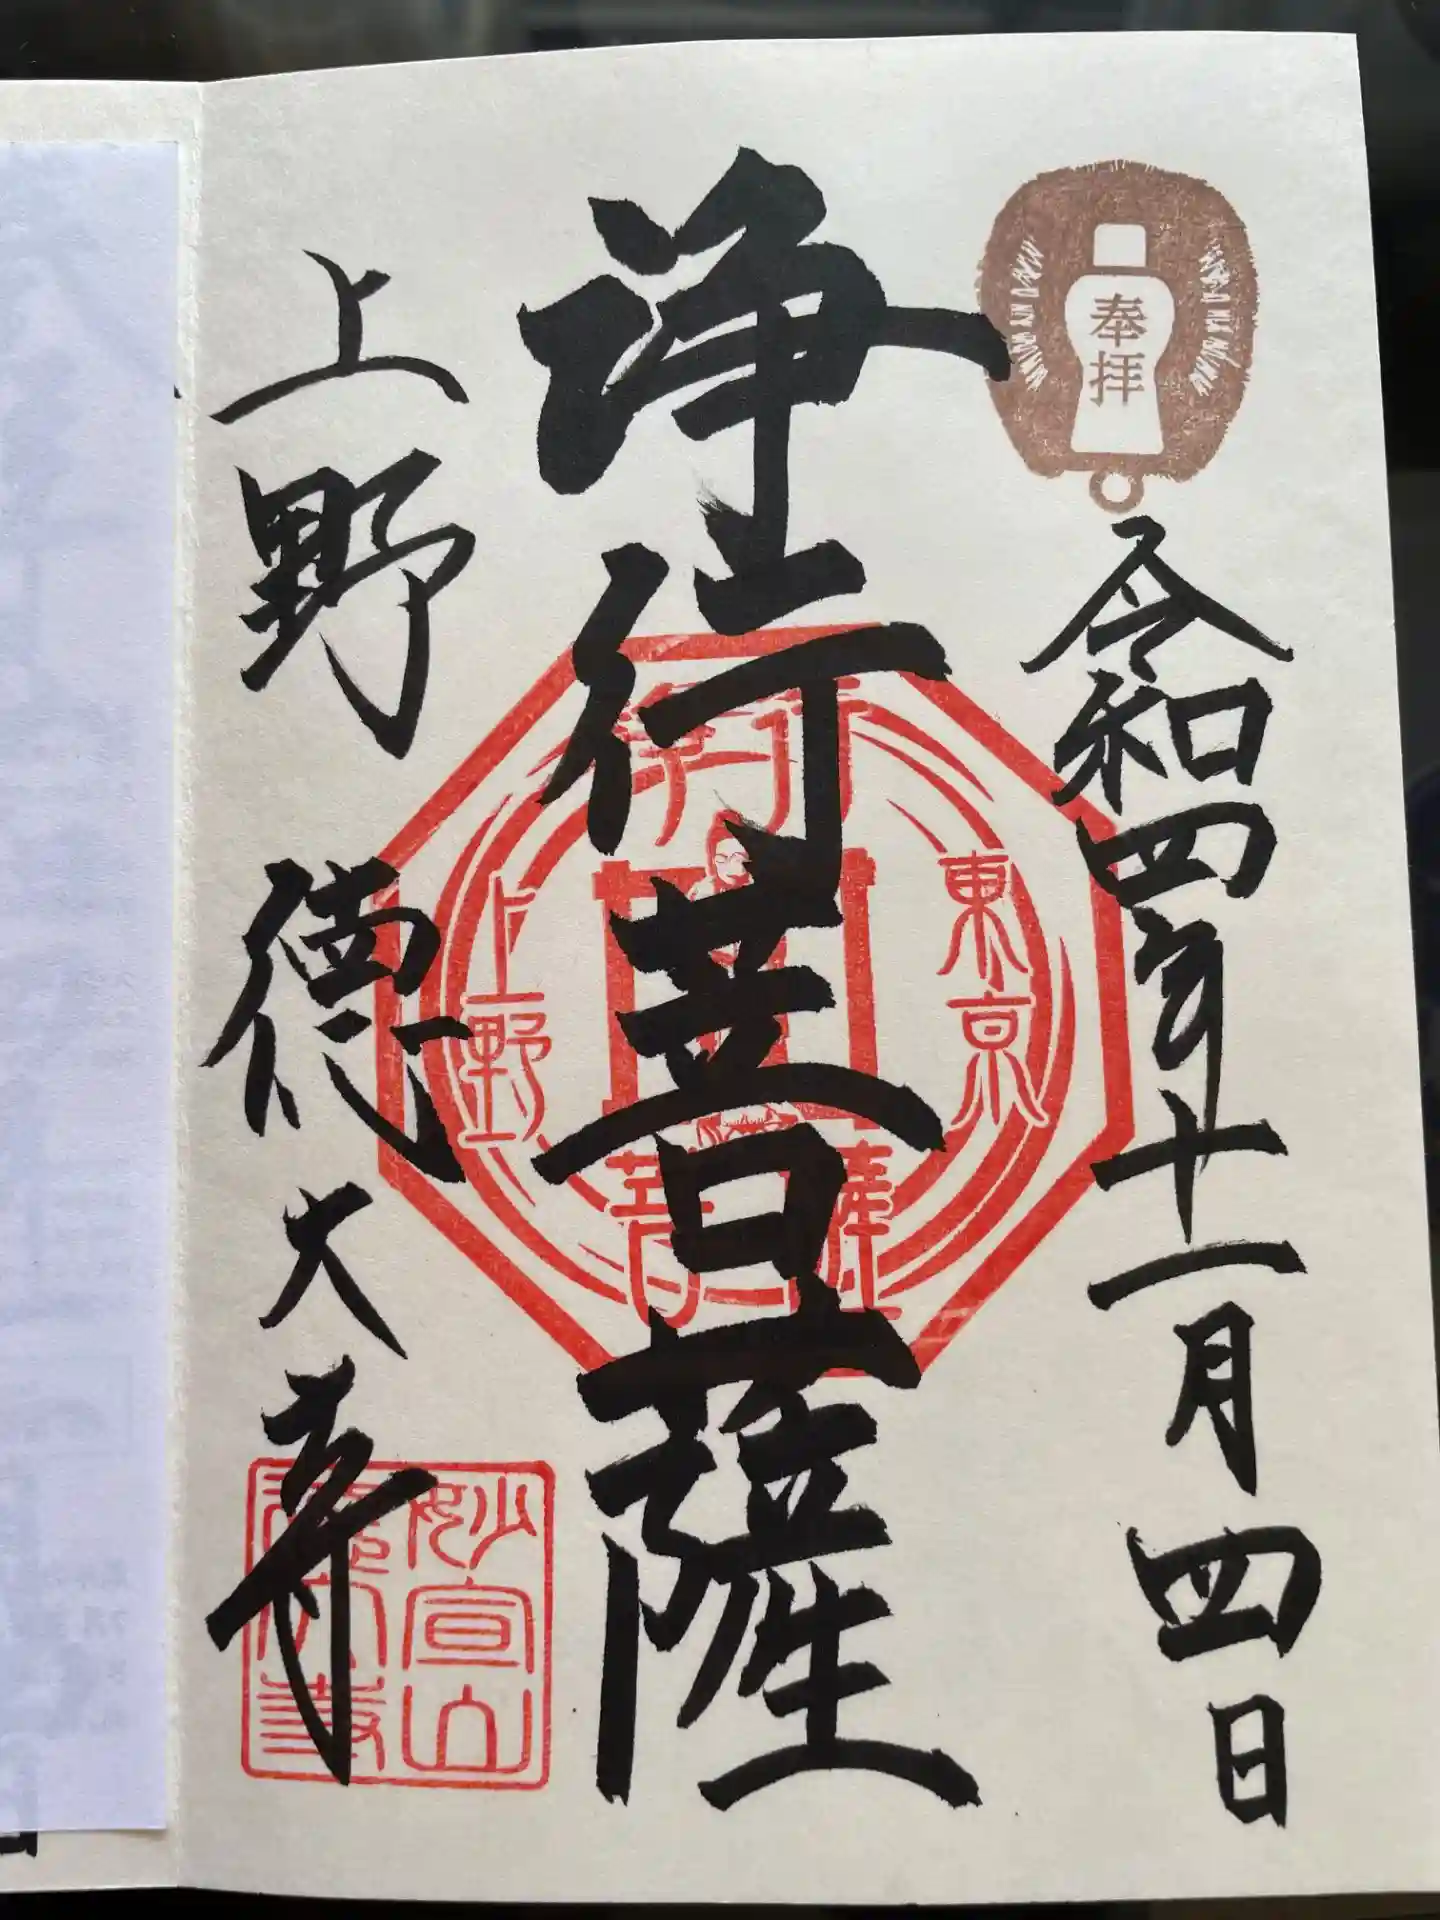 奉拝
令和四年十一月四日
浄行菩薩
浄行
菩薩
東京
上野
上野 徳大寺
妙宣山
徳大寺